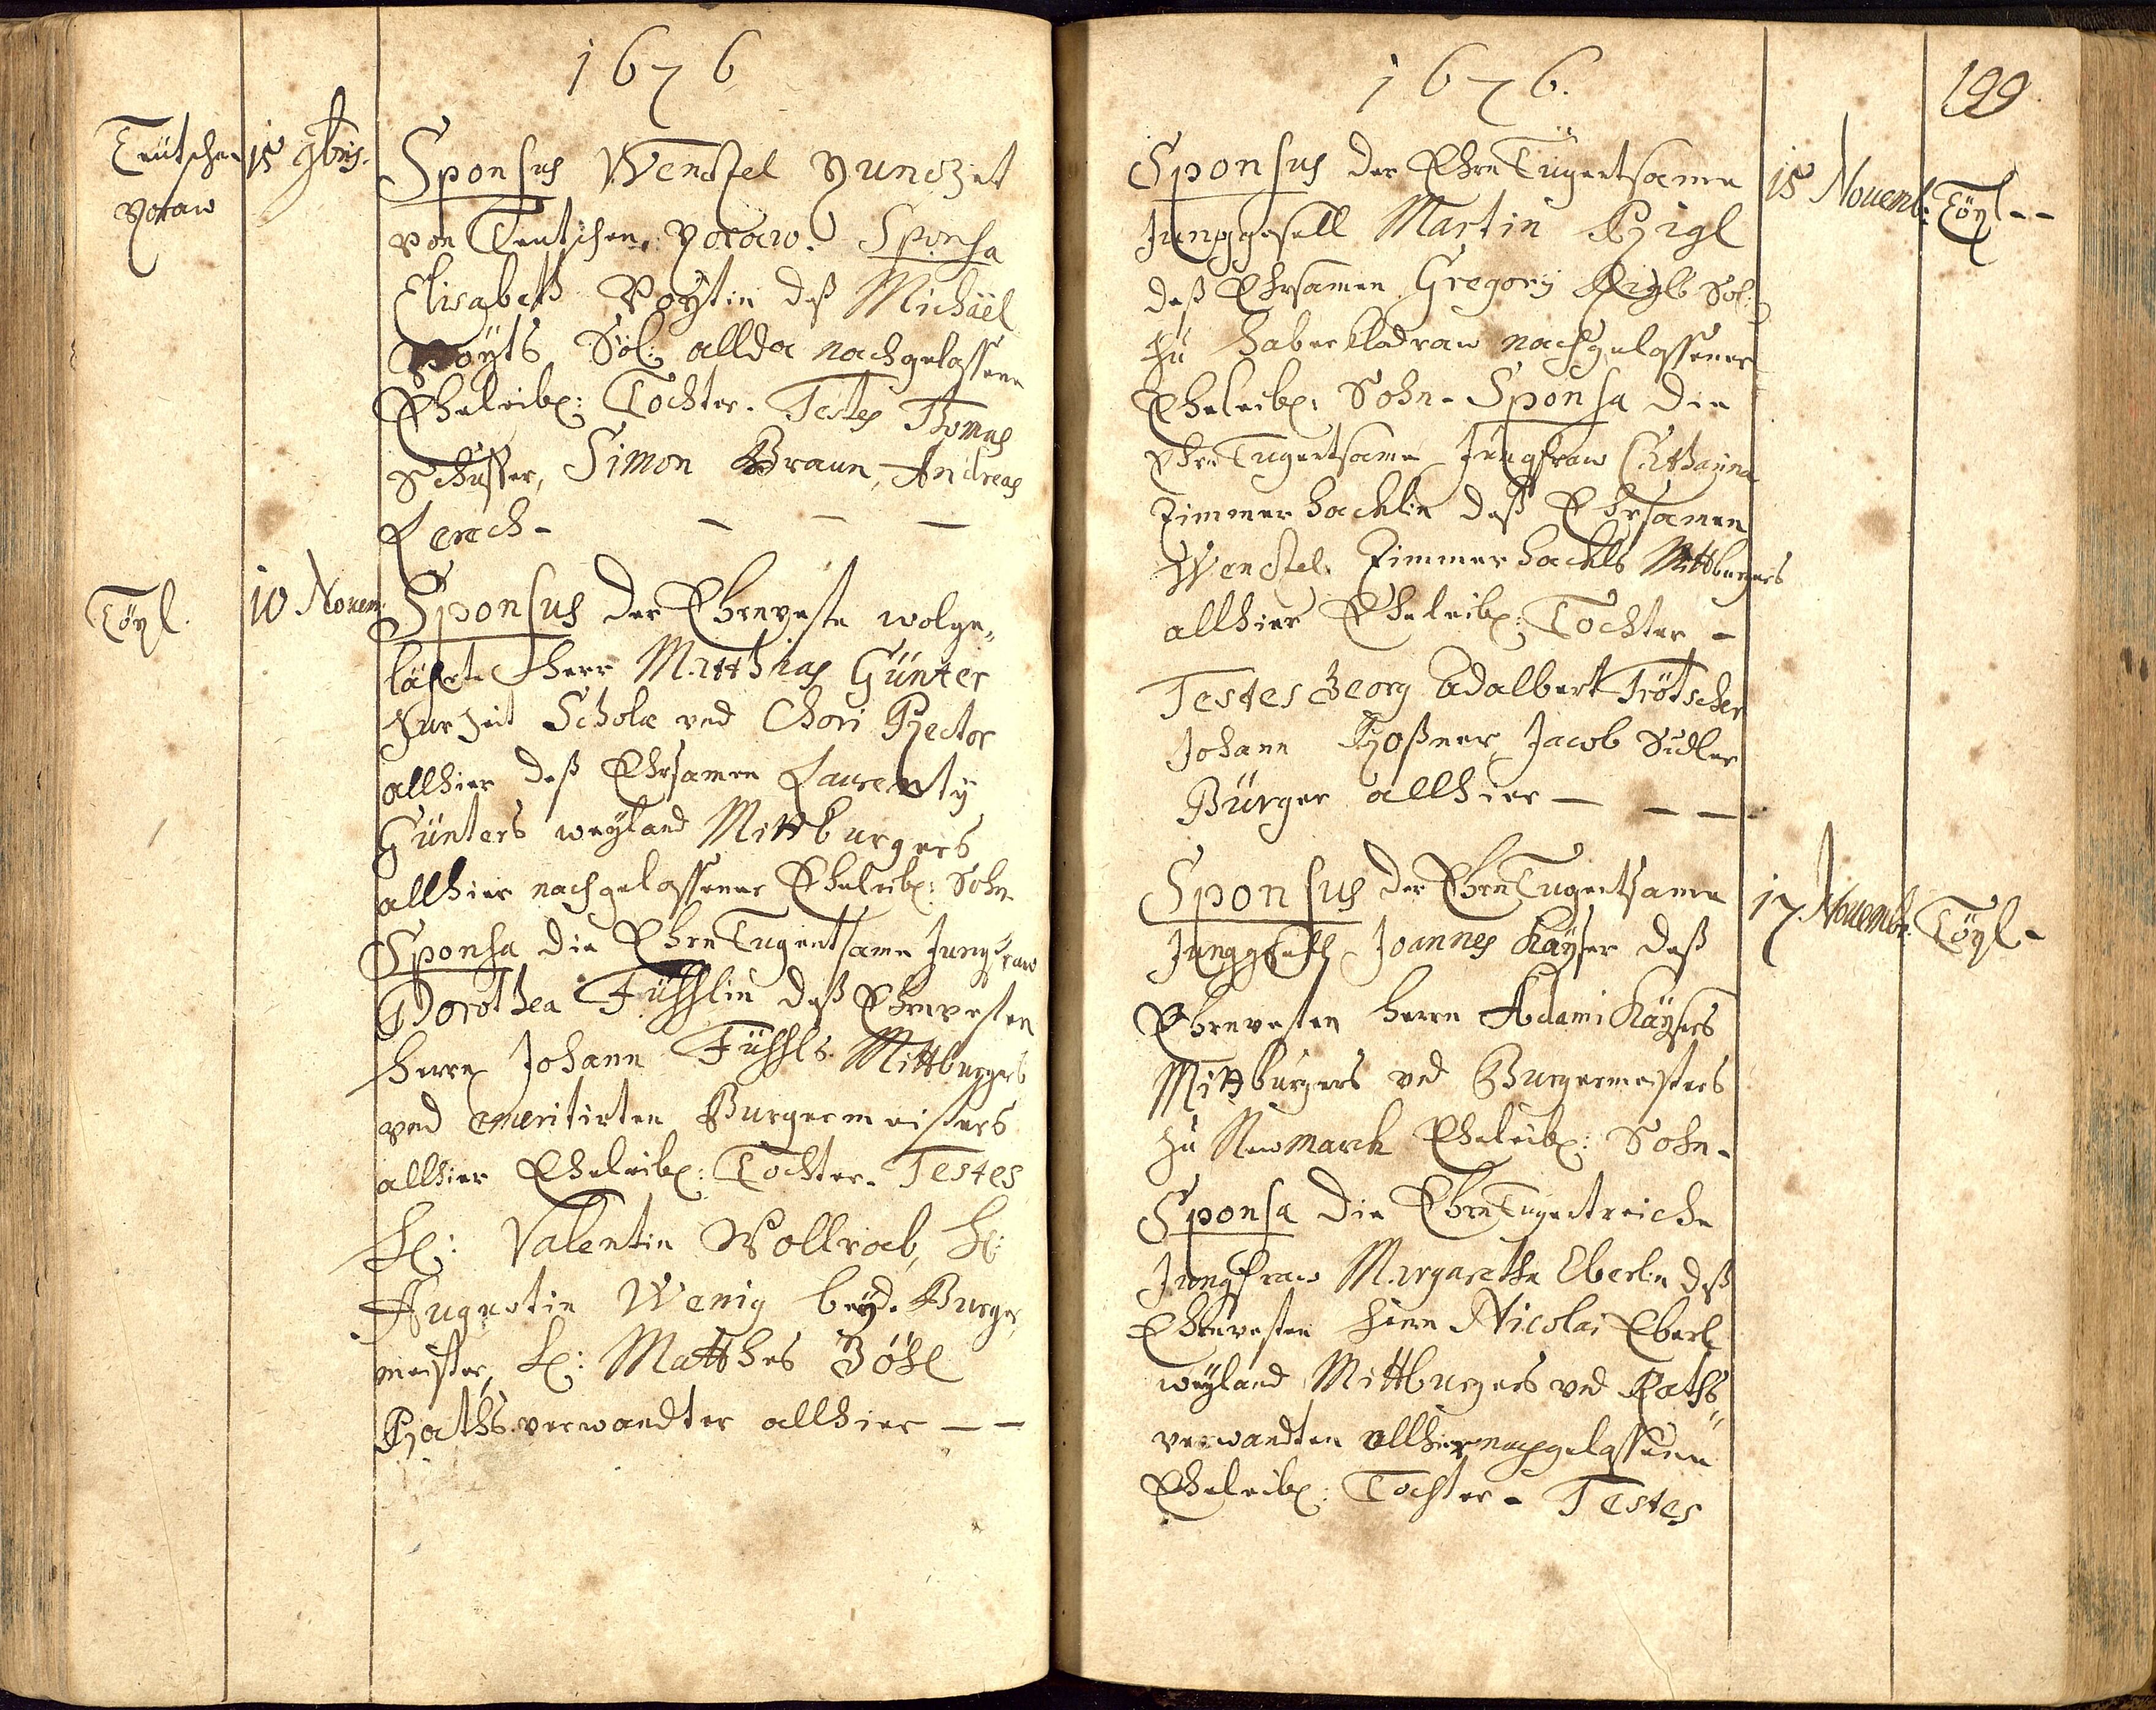 1676
Teütschen
Voraw
15 9bris.
Sponsus Wentzel
von Teutschen Voraw. Sponsa
Elisabeth Voytin deß Michäel
Voyts Sel: allda nachgelassene
Eheleibl: Tochter. Testes Thomas
Schuster, Simon Braun, Andreas
Lerach - - - -
Töpl.
10 Novem:
Sponsus der Ehrnveste wolge-
lährte Herr Matthias Günter
zur Zeit Scholæ vnd Chori Rector
allhier deß Ehrsamen Laurenty
Günters weyland Mittburgers
allhier nachgelassener Eheleibl: Sohn
Sponsa die EhrnTugentsame Jungfraw
Dorothea Füsslin deß Ehrnvesten
Herrn Johann Füssls Mittburgers
vnd emeritirten Burgermeisters
allhier Eheleibl: Tochter. Testes
H: Valentin Vollrab, H:
Augustin Wenig beyd. Burger
meister, H: Matthes
Raths verwandter allhier - -
1676.
199
15 Novemb:
Töpl - -
Sponsus der EhrnTugentsame
Junggesell Martin Rigl
deß Ehrsamen Gregory Rigls Sel:
zu Haber kladraw nachgelassener
Eheleibl: Sohn - Sponsa die
EhrnTugentsame Jungfraw Catharina
Zimmerhacklin deß Ehrsamen
Wentzel Zimmerhackls Mittburgers
allhier Eheleibl: Tochter -
Testes Georg Adalbert Trötscher
Johann Roßner Jacob Sidler
Bürger allhier - - -
17. Novemb:
Töpl -
Sponsus der EhrnTugentsame
Junggesell Joannes Kayser deß
Ehrnvesten Herrn Adami Kaysers
Mittbürgers vnd Burgermeisters
zu Newmarck Eheleibl: Sohn -
Sponsa die EhrnTugentreiche
Jungfraw Margaretha Eberlin deß
Ehrnvesten Herrn Nicolai Eberl
weyland Mittburgers vnd Raths
verwandten allhier nachgelassene
Eheleibl: Tochter - Testes